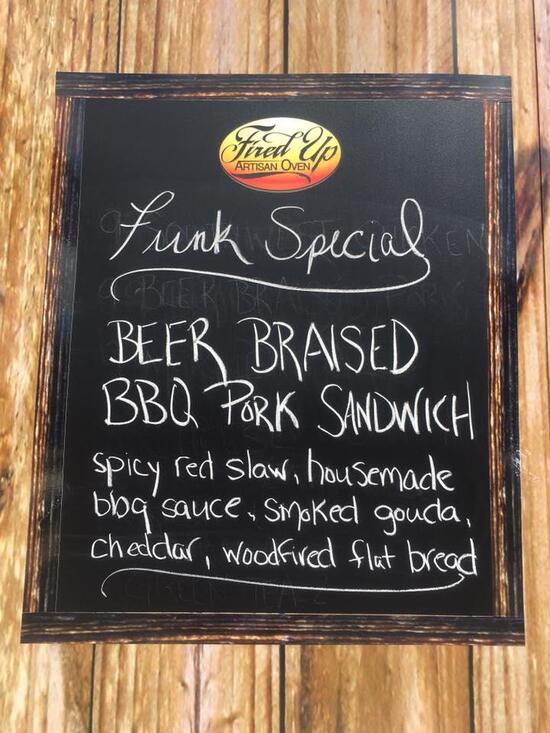 Fired Up
ARTISAN OVEN
Funk Special
BEER BRAISED
BBQ PORK SANDWICH
spicy red slaw, housemade
bbq sauce, smoked gouda,
cheddar, woodfired flat bread